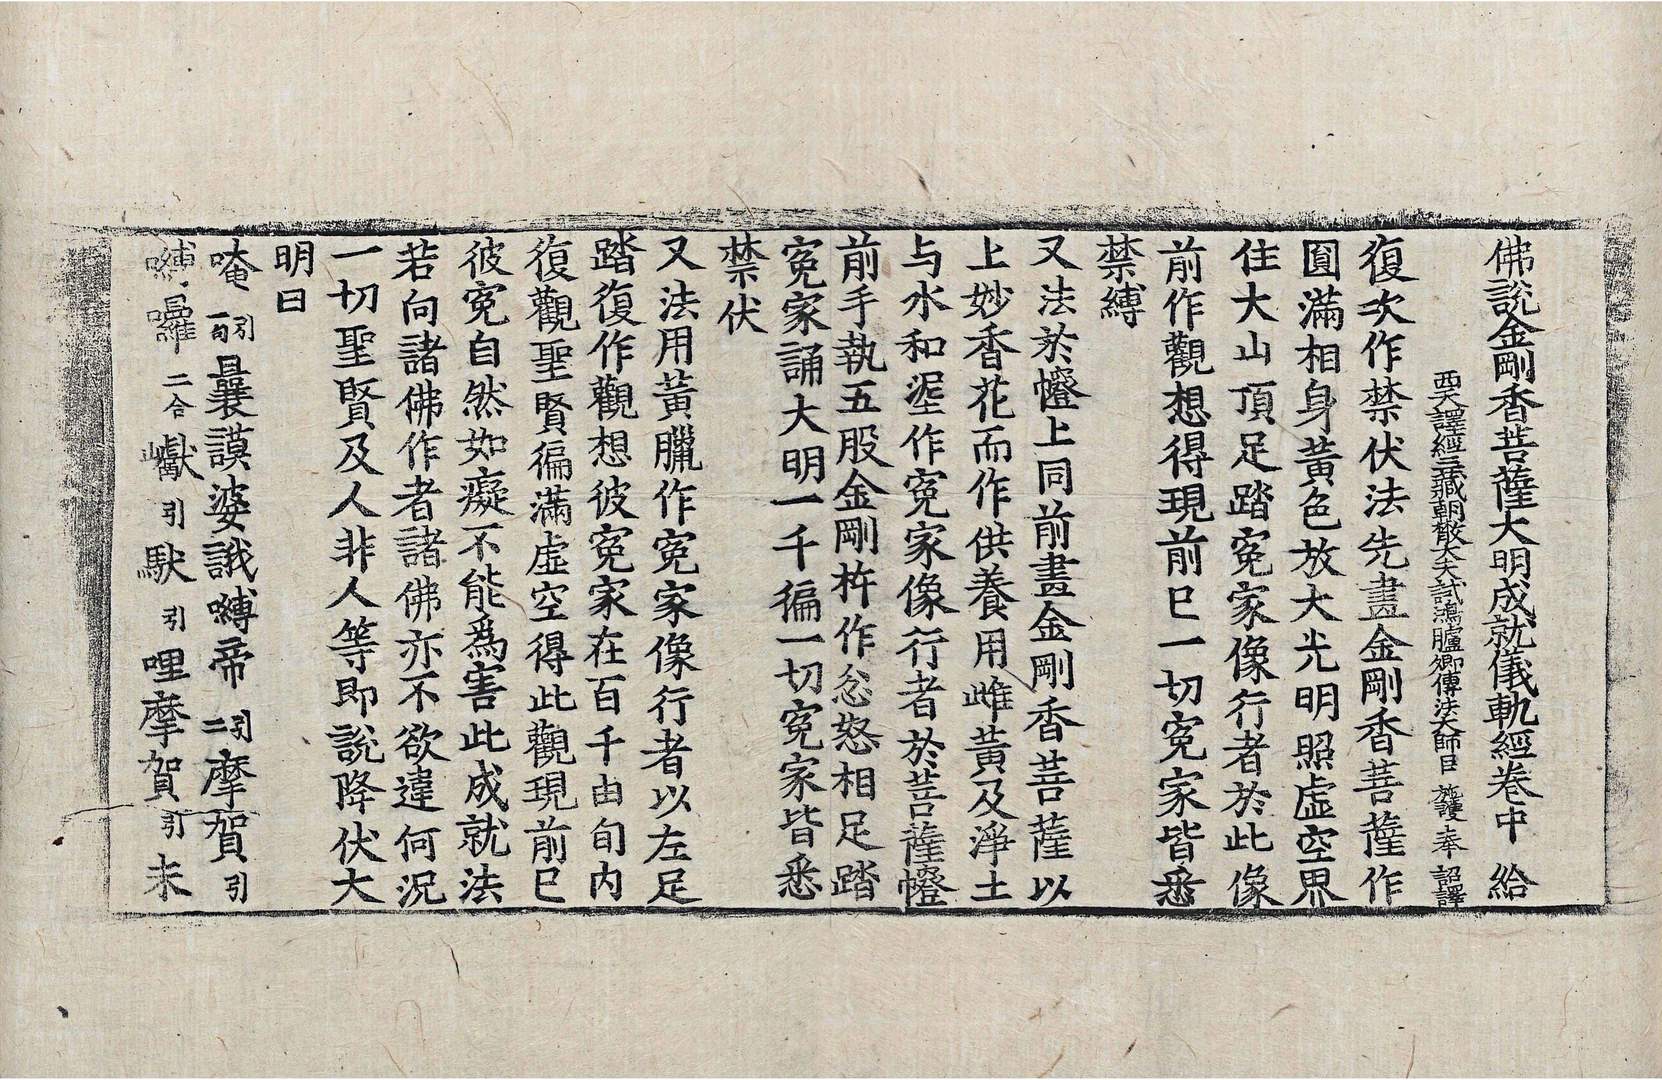 佛說金剛香菩薩大明成就儀軌經卷中 給
西天譯經三藏朝散大夫試鴻臚卿傳法大師臣 施護 奉 詔譯
復次作禁伏法先畫金剛香菩薩作
圓滿相身黃色放大光明照虛空界
住大山頂足踏寃家像行者於此像
前作觀想得現前已一切寃家皆悉
禁縛
又法於㡧上同前畫金剛香菩薩以
上妙香花而作供養用雌黃及淨土
与水和渥作寃家像行者於菩薩㡧
前手執五股金剛杵作忿怒相足踏
寃家誦大明一千徧一切寃家皆悉
禁伏
又法用黃臘作寃家像行者以左足
踏復作觀想彼寃家在百千由旬內
復觀聖賢徧滿虛空得此觀現前已
彼寃自然如癡不能爲害此成就法
若向諸佛作者諸佛亦不欲違何況
一切聖賢及人非人等即說降伏大
明曰
唵 引一句 曩謨婆誐嚩帝 引二 摩賀 引
嚩囉 二合 巘 引 馱 引 哩摩賀 引 未